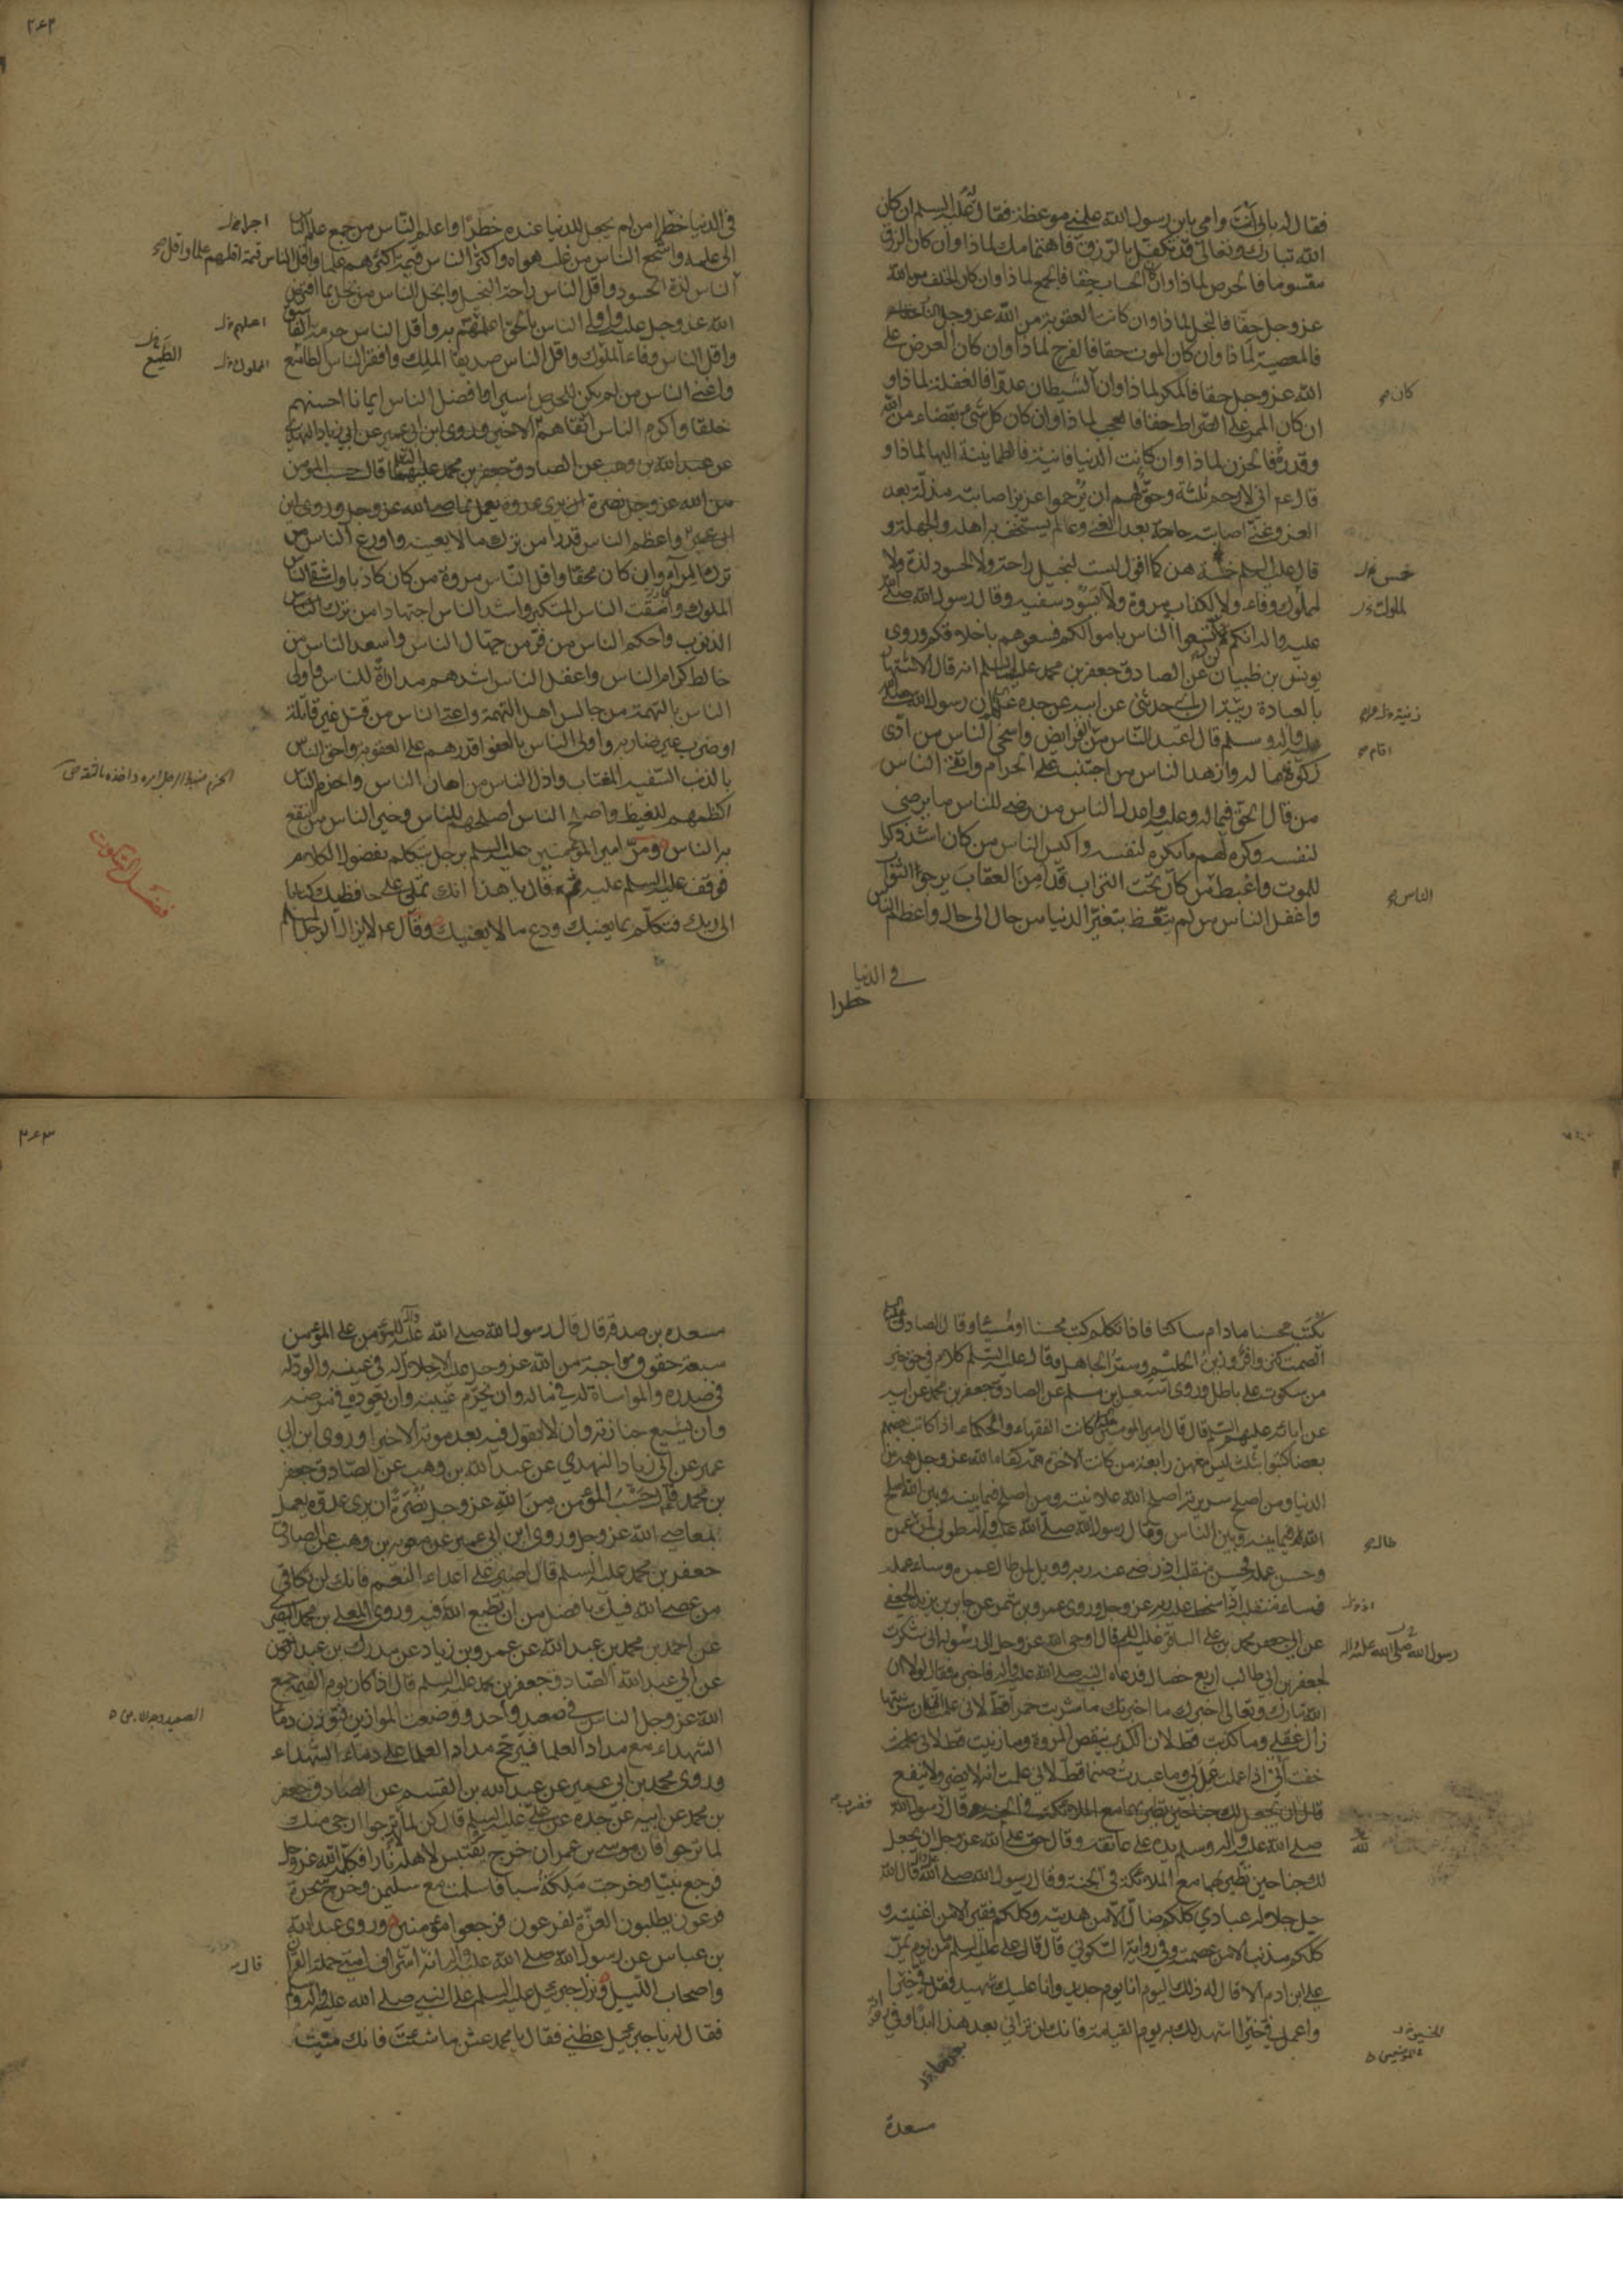 فقال له بابي انت وامي يابن رسول الله علمني موعظة فقال عليه السلم ان كان
الله تبارك وتعالى قد تكفل بالرزق فاهتمامك لماذا وان كان الرزق
مقسوما فالحرص لماذا وان كان الحساب حقا فالجمع لماذا وان كان الخلف من الله
عز وجل حقا فالبخل لماذا وان كانت العقوبة من الله عز وجل النار
فالمعصية لماذا وان كان الموت حقا فالفرح لماذا وان كان العرض على
الله عز وجل حقا فالمكر لماذا وان كان الشيطان عدوا فالغفلة لماذا و
ان كان الممر على الصراط حقا فالعجب لماذا وان كان كل شيء بقضاء من الله
وقدره فالحزن لماذا وان كانت الدنيا فانية فالطمانينة اليها لماذا و
قال ع اني لارحم ثلثة وحق لهم ان يرحموا عزيز اصابته مذلة بعد
العز وغني اصابته حاجة بعد الغنى وعالم يستخف به اهله والجهلة و
قال عليه السلم خمسة هن كما اقول ليست لبخيل راحة ولا لحسود لذة ولا
لمملوك وفاء ولا لكذاب مروة ولا يسود سفيه وقال رسول الله صلى الله
عليه واله انكم لن تسعوا الناس باموالكم فسعوهم باخلاقكم وروى
يونس بن ظبيان عن الصادق جعفر بن محمد عليهما السلم انه قال الاشتهار
بالعبادة ريبة ان ابي حدثني عن ابيه عن جده ع ان رسول الله صلى الله
عليه واله وسلم قال اعبد الناس من الفرايض واسخى الناس من ادى
زكوة ماله وازهد الناس من اجتنب على الحرام واتقى الناس
من قال الحق فيما له وعليه واعدل الناس من رضي للناس ما يرضى
لنفسه وكره لهم ما يكره لنفسه واكيس الناس من كان اشد ذكرا
للموت واغبط من كان تحت التراب قد امن العقاب يرجو الثواب
واغفل الناس من لم يتعظ بتغير الدنيا من حال الى حال واعظم الناس
كان
خمس
لملوك
اقام
الناس
في الدنيا
خطرا
٢٦٢
في الدنيا خطرا من لم يجعل للدنيا عنده خطرا واعلم الناس من جمع علم الناس
الى علمه واشجع الناس من غلب هواه واكثر الناس قيمة اكثرهم علما واقل الناس قيمة اقلهم علما واقل
الناس لذة الحسود واقل الناس راحة البخيل وابخل الناس من بخل بما افترض
الله عز وجل عليه واولى الناس بالحق اعلمهم به واقل الناس حرمة الفاسق
واقل الناس وفاء الملوك واقل الناس صديقا الملك وافقر الناس الطامع
واغنى الناس من لم يكن للحرص اسيرا وافضل الناس ايمانا احسنهم
خلقا واكرم الناس اتقاهم الاخير وروى ابن ابي عمير عن ابي زياد النهدي
عن عبد الله بن وهب عن الصادق جعفر بن محمد عليهما السلم قال حسب المومن
من الله عز وجل نصرة ان يرى عدوه يعمل بمعاصي الله عز وجل وروى ابن
ابي عمير واعظم الناس قدرا من ترك ما لا يعنيه واورع الناس من
ترك المراء وان كان محقا واقل الناس مروة من كان كاذبا واشقى الناس
الملوك وامقت الناس المتكبر واشد الناس اجتهادا من ترك
الذنوب واحكم الناس من فر من جهال الناس واسعد الناس من
خالط كرام الناس واعقل الناس اشدهم مداراة للناس واولى
الناس بالتهمة من جالس اهل التهمة واعتى الناس من قتل غير قاتله
او ضرب غير ضاربه واولى الناس بالعفو اقدرهم على العقوبة واحق الناس
بالذنب السفيه المغتاب واذل الناس من اهان الناس واحزم الناس
اكظمهم للغيظ واصلح الناس اصلحهم للناس وخير الناس من انتفع
به الناس ومر امير المؤمنين عليه السلم برجل يتكلم بفضول الكلام
فوقف عليه السلم عليه ثم قال يا هذا انك تملي على حافظيك كتابا
الى ربك فتكلم بما يعنيك ودع ما لا يعنيك وقال ع لا يزال الرجل المسلم
الطمع
الحزم ضبط الرجل امره واخذه بالثقة ص
فضل السكوت
يكتب محسنا مادام ساكتا فاذا تكلم كتب محسنا او مسيئا وقال الصادق عليه السلم
الصمت كنز وافر وزين الحليم وستر الجاهل وقال عليه السلم كلام في حق خير
من سكوت على باطل وروى اسمعيل بن مسلم عن الصادق جعفر بن محمد عن ابيه
عن ابائه عليهم السلم قال قال امير المومنين كانت الفقهاء والحكماء اذا كاتب بعضهم
بعضا كتبوا بثلث ليس معهن رابعة من كانت الاخرة همه كفاه الله عز وجل همه من
الدنيا ومن اصلح سريرته اصلح الله علانيته ومن اصلح فيما بينه وبين الله اصلح
الله فيما بينه وبين الناس وقال رسول الله صلى الله عليه واله طوبى لمن عمره
وحسن عمله فحسن منقلبه اذ رضي عنه ربه وويل لمن طال عمره وساء عمله
فساء منقلبه اذا سخط عليه ربه عز وجل وروى عمرو بن شمر عن جابر بن يزيد الجعفي
عن ابي جعفر محمد بن علي الباقر عليه السلم قال اوحى الله عز وجل الى رسوله اني شكرت
لجعفر بن ابي طالب اربع خصال فدعاه النبي صلى الله عليه واله فاخبره فقال لولا ان
الله تبارك وتعالى اخبرك ما اخبرتك ما شربت خمرا قط لاني علمت ان شربتها
زال عقلي وما كذبت قط لان الكذب ينقص المروة وما زنيت قط لاني
خفت اني اذا عملت عمل بي وما عبدت صنما قط لاني علمت انه لا يضر ولا ينفع
قال رسول الله
صلى الله عليه واله وسلم يده على عاتقه وقال حق على الله عز وجل ان يجعل
لك جناحين تطير بهما مع الملائكة في الجنة وقال رسول الله صلى الله عليه واله قال الله
جل جلاله عبادي كلكم ضال الا من هديته وكلكم فقير الا من اغنيته و
كلكم مذنب الا من عصمته وفي رواية السكوني قال قال علي عليه السلم ما من يوم يمر
على ابن ادم الا قال له ذلك اليوم انا يوم جديد وانا عليك شهيد فقل في خيرا
واعمل في خيرا اشهد لك به يوم القيامة فانك لن تراني بعد هذا ابدا وفي رواية
طال
رسول الله صلى الله عليه واله
فضرب
لله
مسعدة
٢٦٣
مسعدة بن صدقة قال قال رسول الله صلى الله عليه واله للمؤمن على المؤمن
سبعة حقوق واجبة من الله عز وجل عليه الاجلال له في عينه والود له
في صدره والمواساة له في ماله وان يحرم غيبته وان يعوده في مرضه
وان يشيع جنازته وان لا يقول فيه بعد موته الا خيرا وروى ابن ابي
عمير عن ابي زياد النهدي عن عبد الله بن وهب عن الصادق جعفر
بن محمد قال حسب المؤمن من الله عز وجل نصرة ان يرى عدوه يعمل
بمعاصي الله عز وجل وروى ابن ابي عمير عن معوية بن وهب عن الصادق
جعفر بن محمد عليه السلم قال اصبر على اعداء النعم فانك لن تكافي
من عصى الله فيك بافضل من ان تطيع الله فيه وروى المعلى بن محمد البصري
عن احمد بن محمد بن عبد الله عن عمرو بن زياد عن مدرك بن عبد الرحمن
عن ابي عبد الله الصادق جعفر بن محمد عليه السلم قال اذا كان يوم القيمة جمع
الله عز وجل الناس في صعيد واحد ووضعت الموازين فتوزن دماء
الشهداء مع مداد العلماء فيرجح مداد العلماء على دماء الشهداء
وروى محمد بن ابي عمير عن عبد الله بن القسم عن الصادق جعفر
بن محمد عن ابيه عن جده عن علي عليه السلم قال كن لما لا ترجوا ارجى منك
لما ترجوا فان موسى بن عمران خرج يقتبس لاهله نارا فكلمه الله عز وجل
فرجع نبيا وخرجت ملكة سبا فاسلمت مع سليمن وخرج سحرة
فرعون يطلبون العزة لفرعون فرجعوا مؤمنين وروى عبد الله
بن عباس عن رسول الله صلى الله عليه واله انه اشراف امتي حملة القران
واصحاب الليل ونزل جبرئيل عليه السلم على النبي صلى الله عليه واله وسلم
فقال له يا جبرئيل عظني فقال يا محمد عش ما شئت فانك ميت
قال